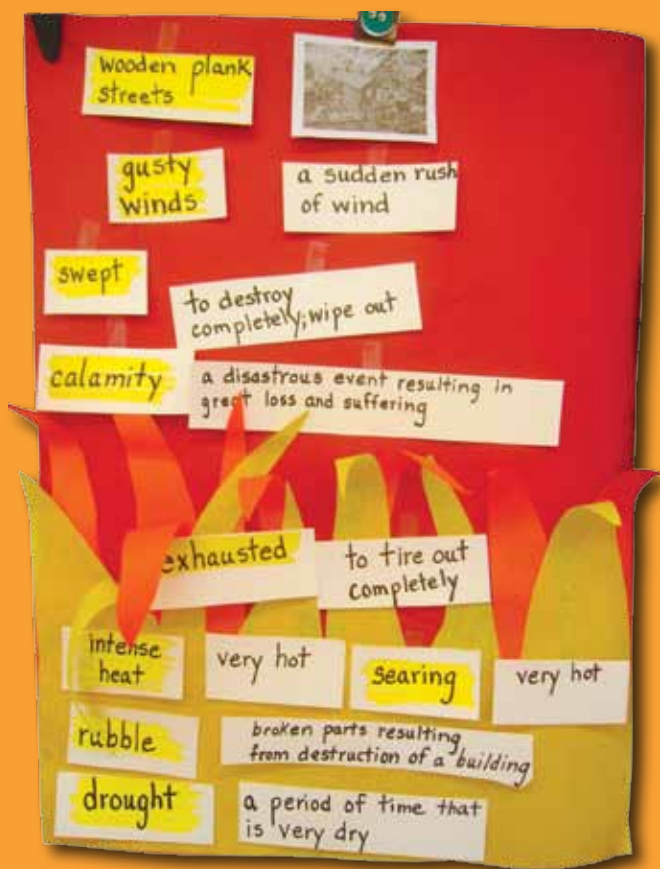 wooden plank
streets
gusty
winds
a sudden rush
of wind
swept
to destroy
completely; wipe out
calamity
a disastrous event resulting in
great loss and suffering
exhausted
to tire out
completely
intense
heat
very hot
searing
very hot
rubble
broken parts resulting
from destruction of a building
drought
a period of time that
is very dry